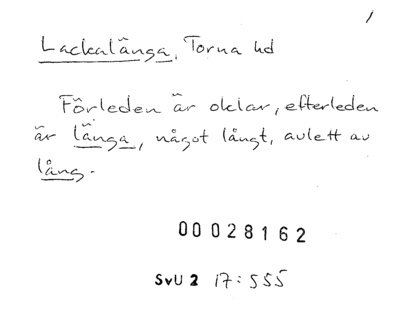 1
Lackalänga, Torna hd
Förleden är oklar, efterleden
är länga, något långt, avlett av
lång.
00028162
SvU 2 17:555